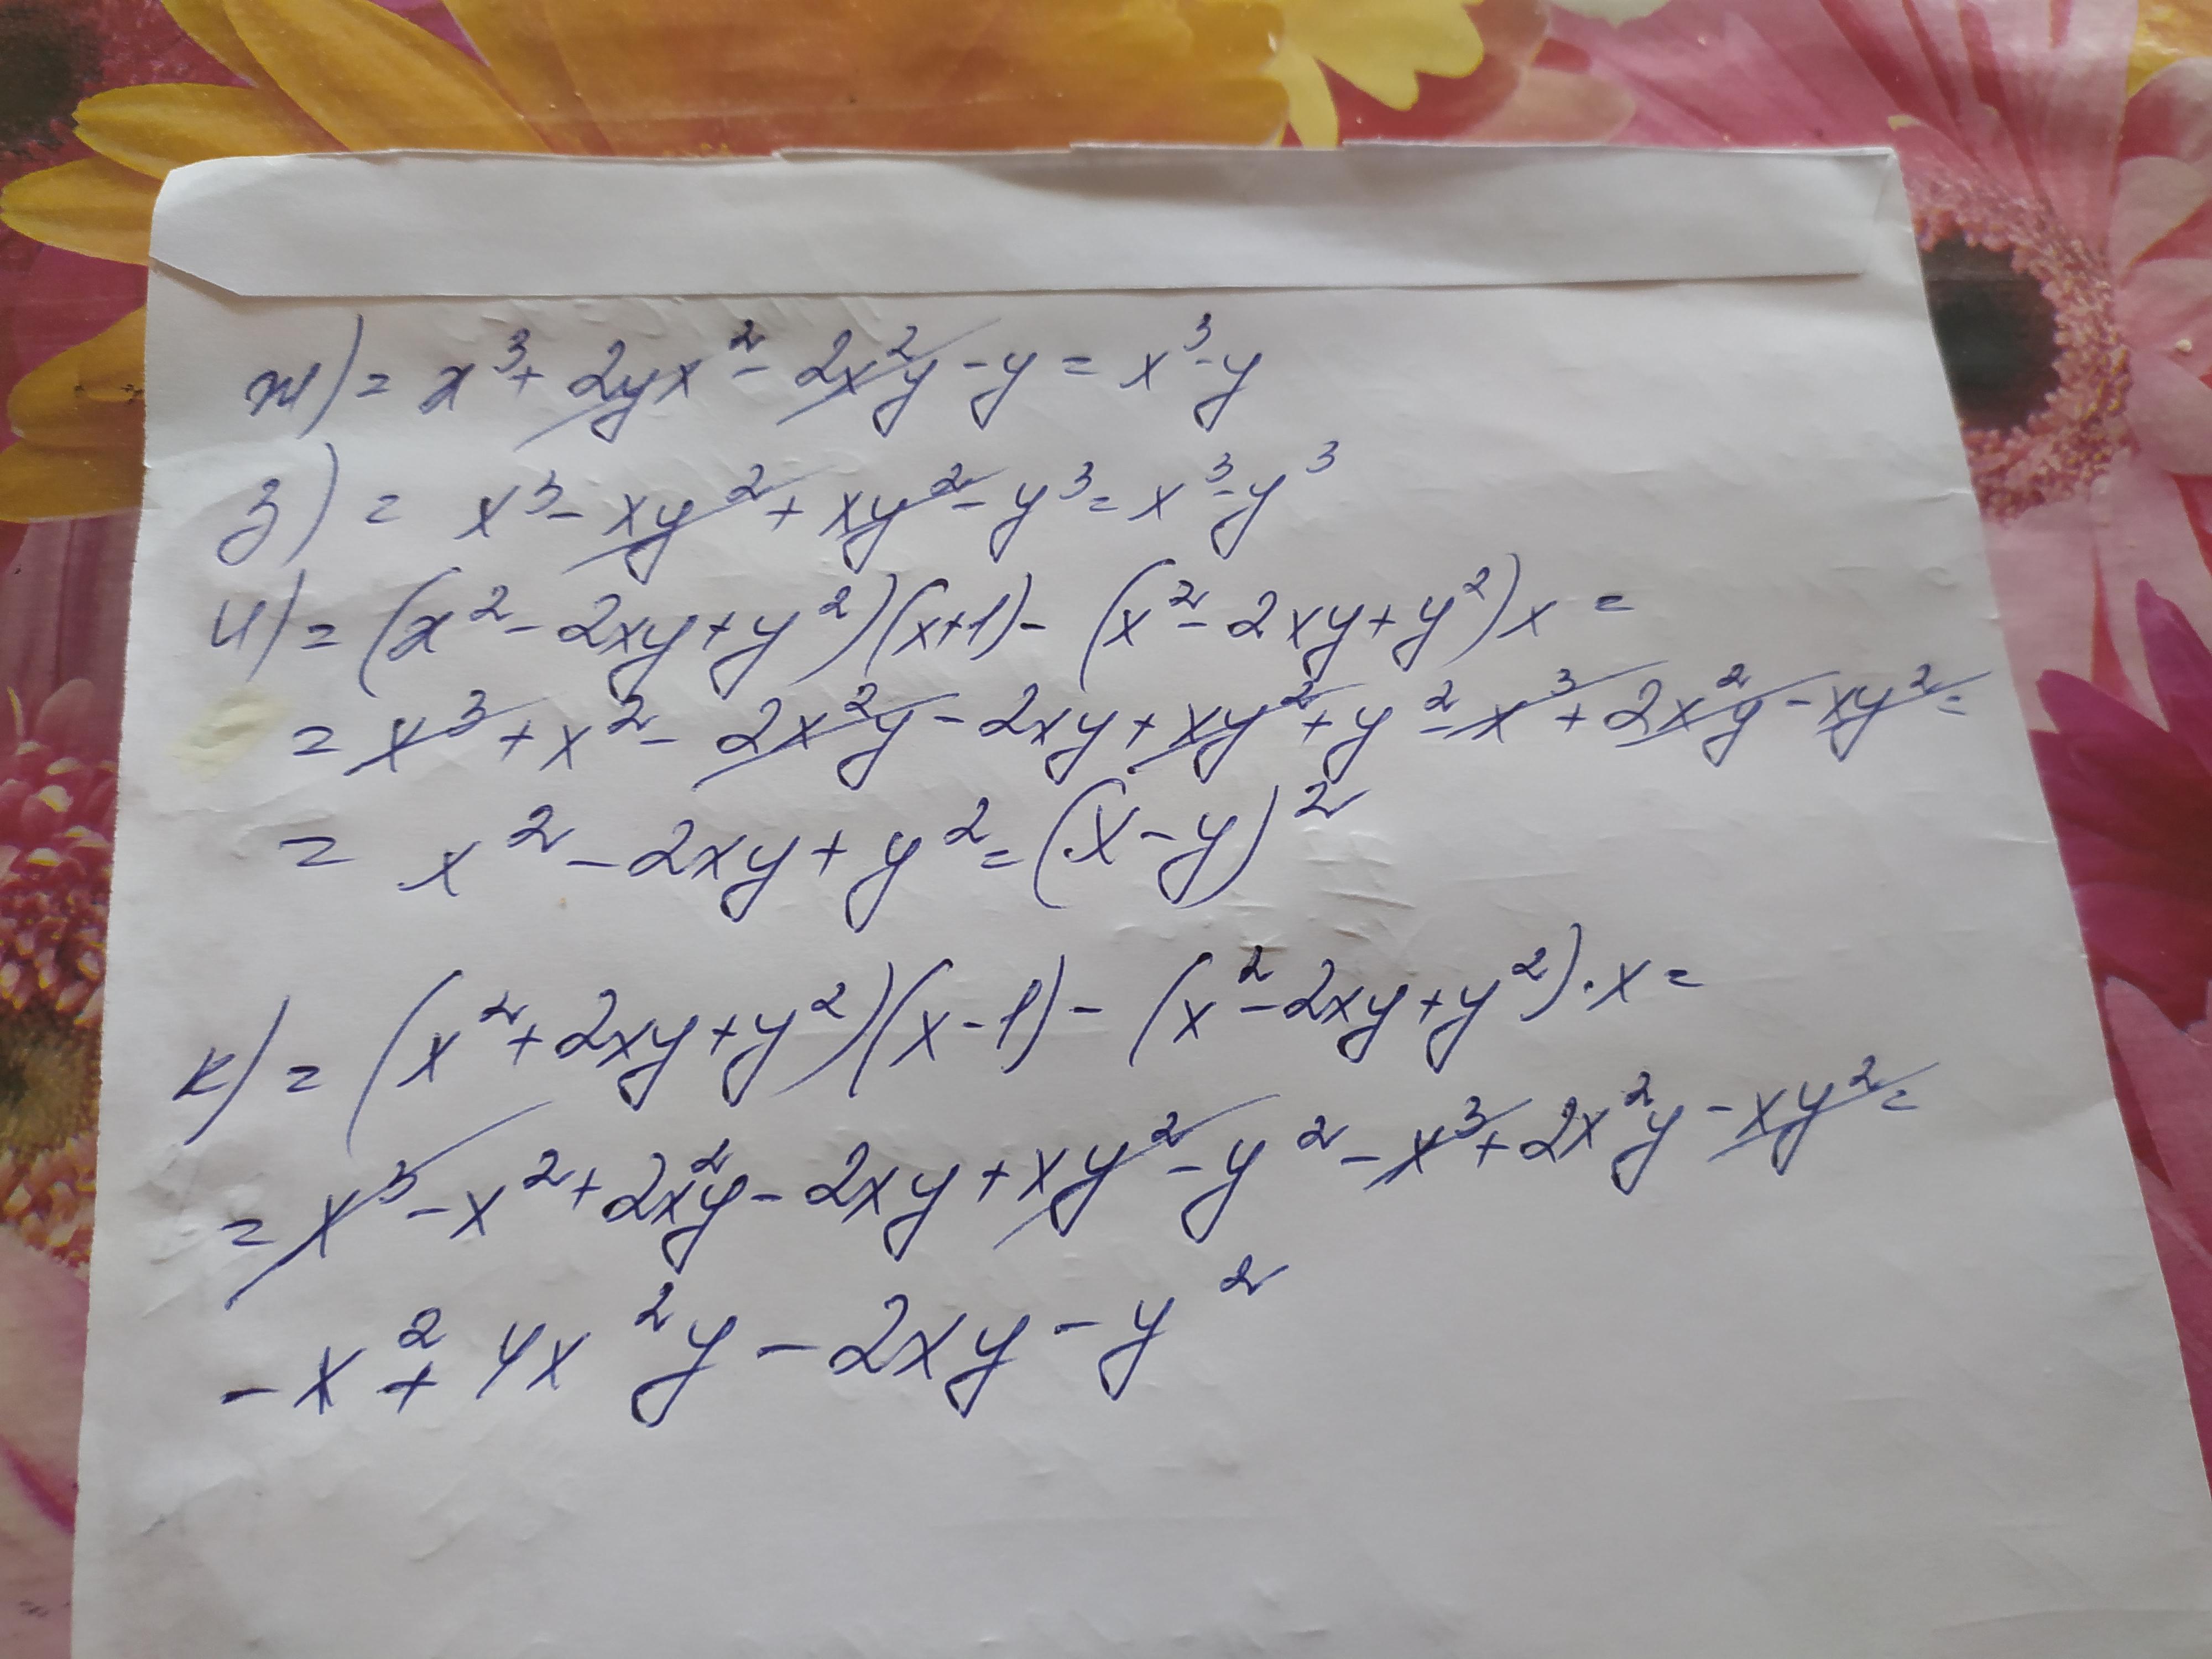 ж) = x³ + 2yx² - 2x²y - y = x³ - y
з) = x³ - xy² + xy² - y³ = x³ - y³
и) = (x² - 2xy + y²)(x+1) - (x² - 2xy + y²)x =
= x³ + x² - 2x²y - 2xy + xy² + y² - x³ + 2x²y - xy² =
= x² - 2xy + y² = (x - y)²
к) = (x² + 2xy + y²)(x - 1) - (x² - 2xy + y²)·x =
= x³ - x² + 2x²y - 2xy + xy² - y² - x³ + 2x²y - xy² =
- x² + 4x²y - 2xy - y²